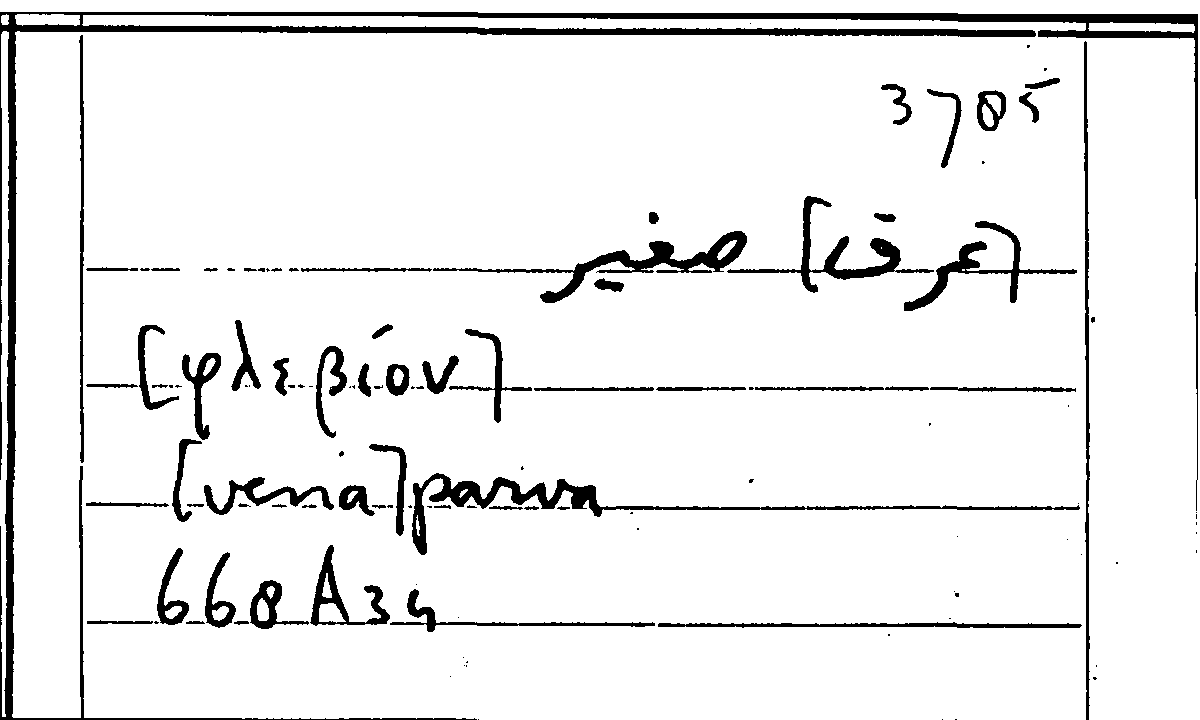 3705
[عرق] صغير
[φλεβίον]
[vena] parva
668 A34